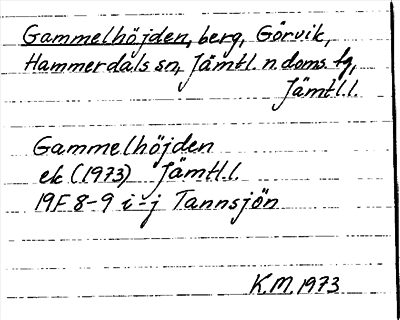 Gammelhöjden, berg, Görvik,
Hammerdals sn, Jämtl. n. doms. tg,
Jämtl.l.
Gammelhöjden
ek (1973) Jämtl.l.
19F 8-9 i-j Tannsjön
K.M. 1973